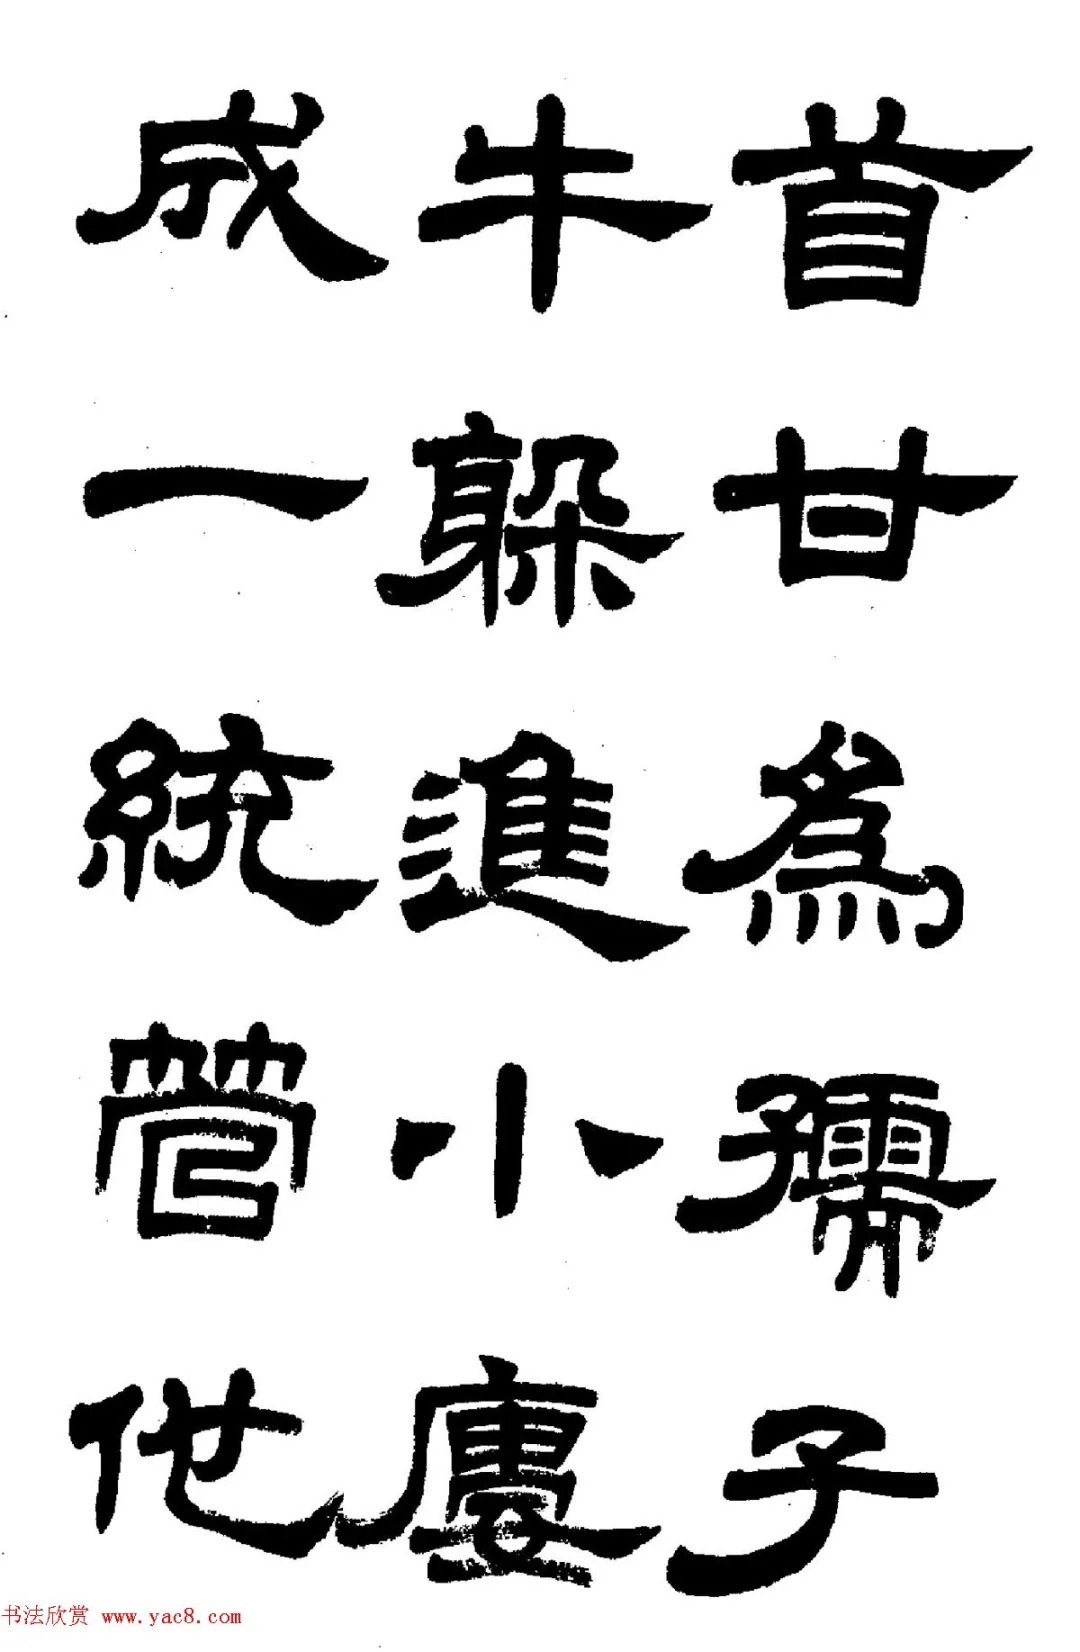 首甘為孺子
牛躲進小廔
成一統管他
书法欣赏 www.yac8.com